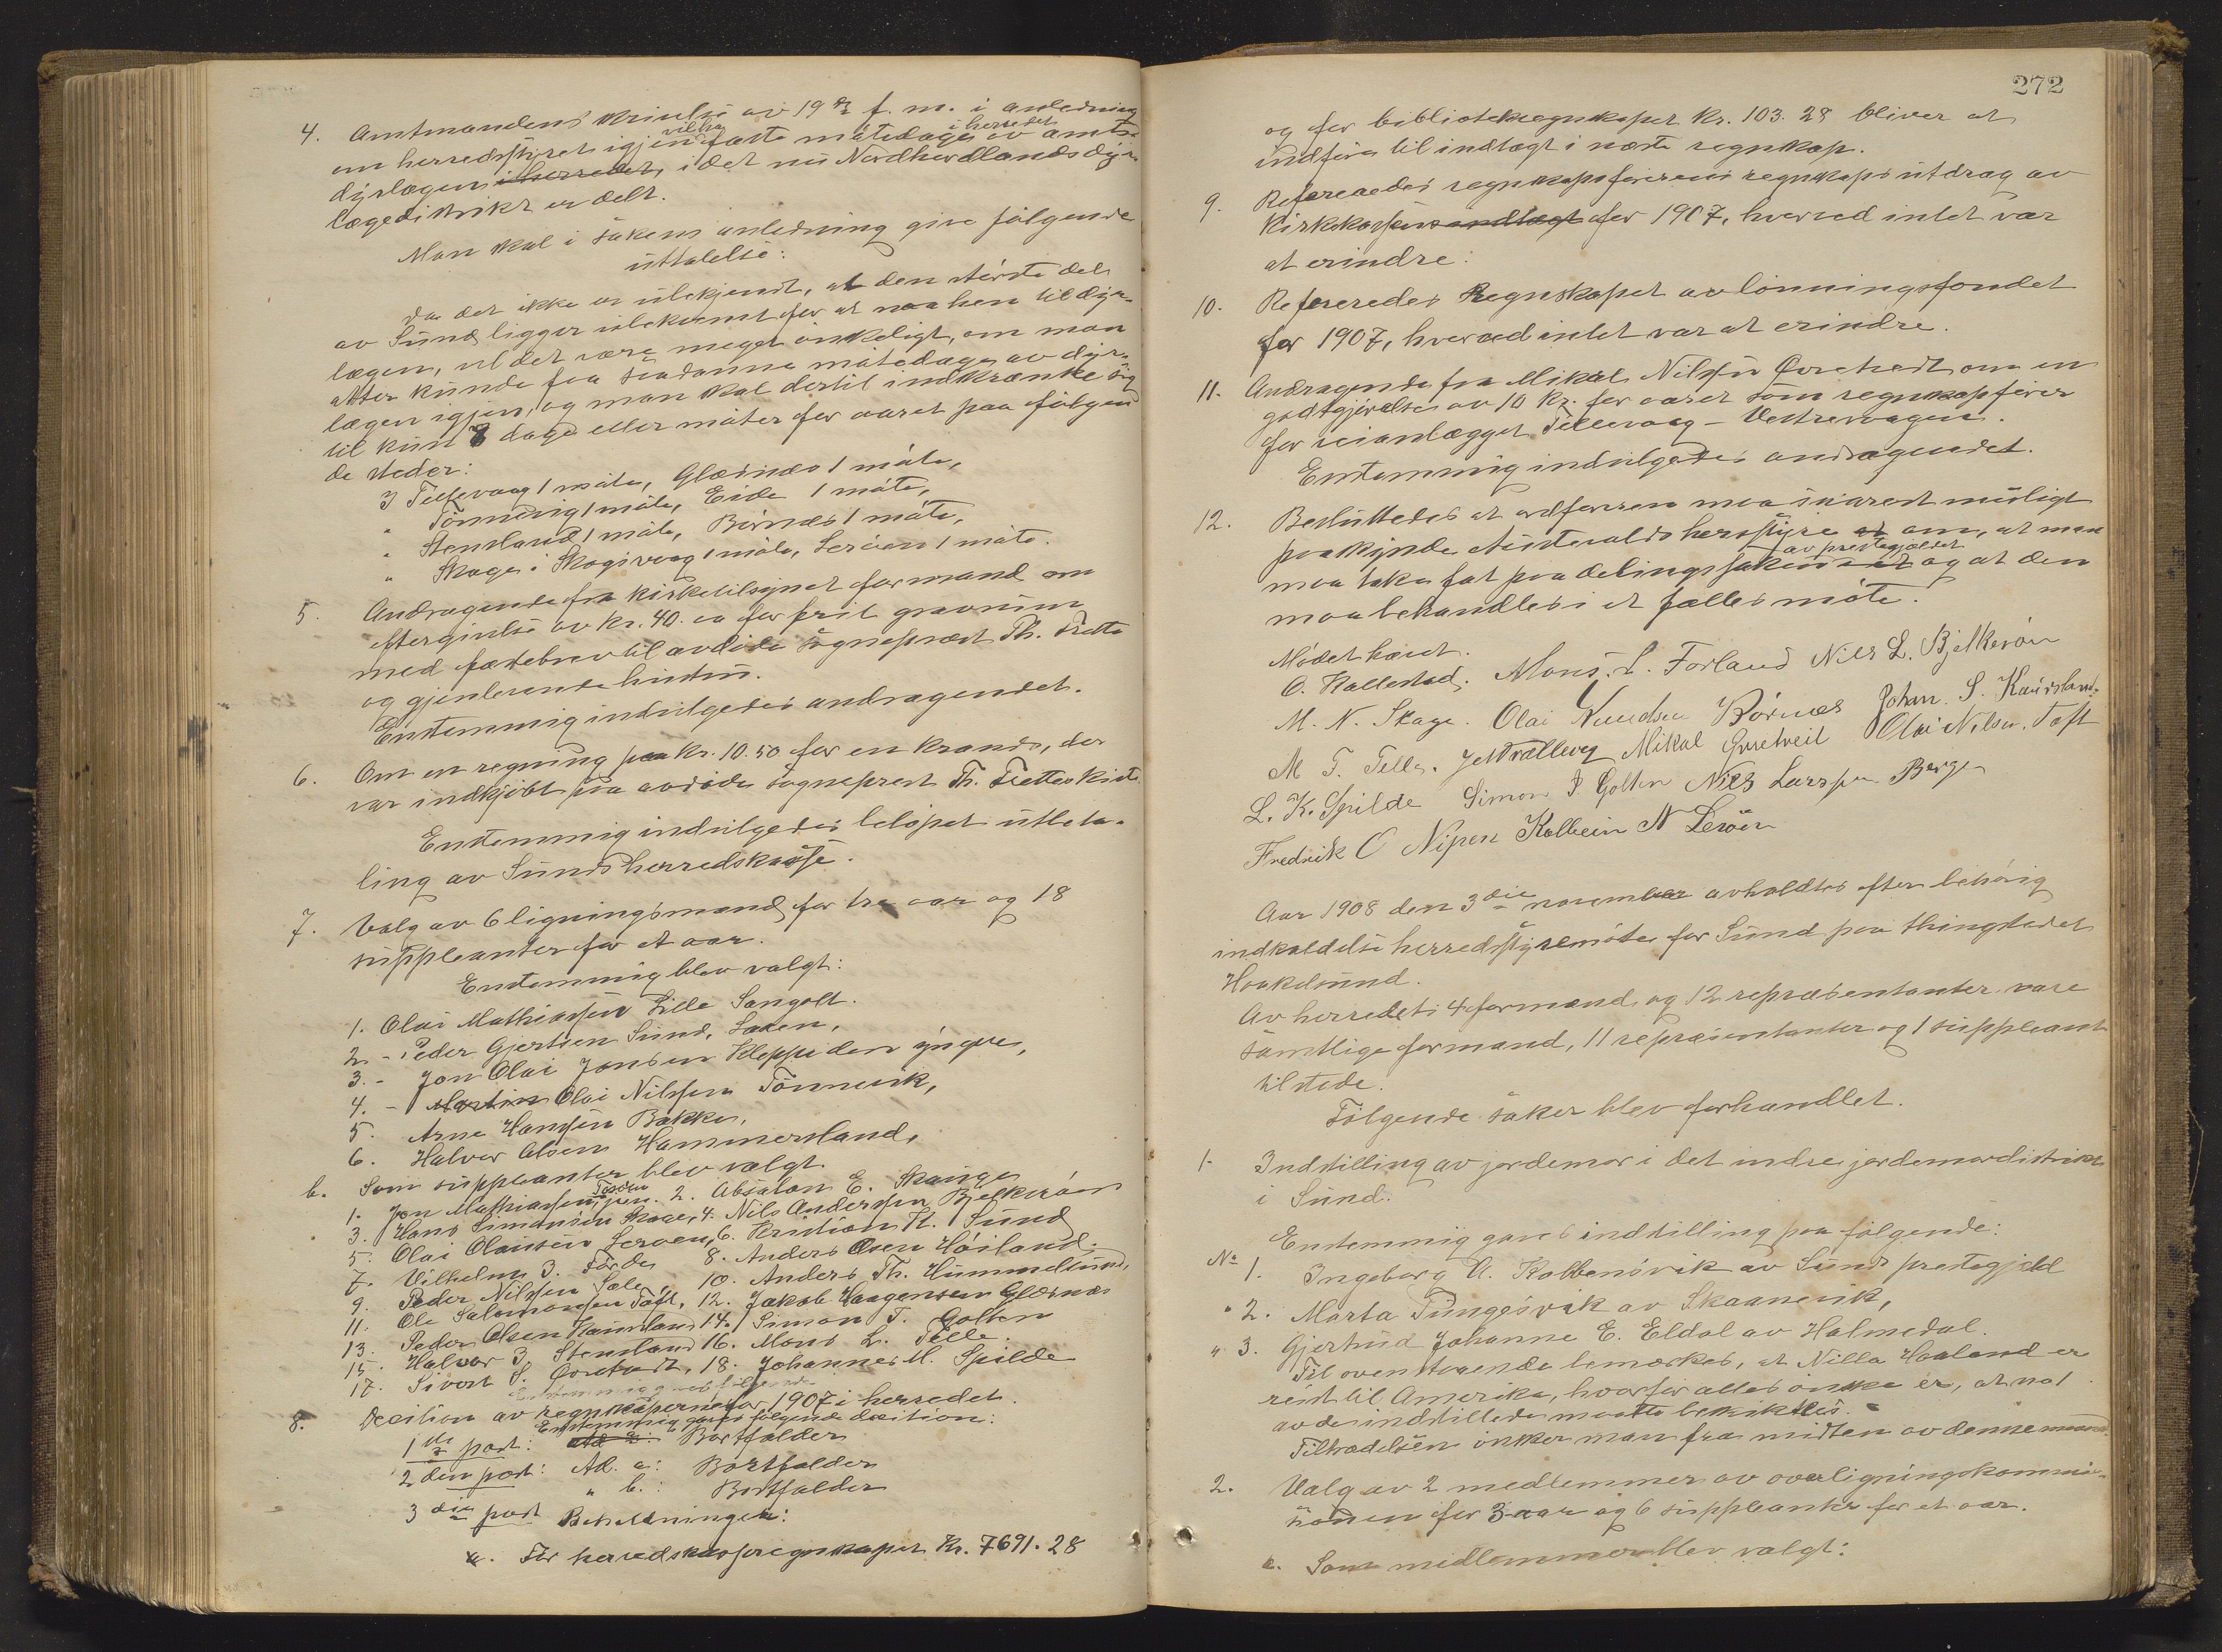 4. Amtmandens skrivelse av 19de f. m. i anledning
om herredsstyret igjen vil ha faste mötedage i herredet av amts-
dyrlægen i herredet, idet nu Nordhordlands dyr-
lægedistrikt er delt.
Man skal i sakens anledning give fölgende
uttalelse:
Da det ikke er ubekjendt, at den störste del
av Sund ligger ubekvemt for at naa hen til dyr-
lægen, vil det være meget önskeligt, om man
atter kunde faa saadanne mötedage av dyr-
lægen igjen, og man skal dertil indskrænke sig
til kun 8 dage eller möter for aaret paa fölgen-
de steder:
I Tellevaag 1 möte, Glæsnæs 1 möte,
" Tönnevig 1 möte, Eide 1 möte,
" Stensland 1 möte, Börnæs 1 möte,
" Skage i Skogsvaag 1 möte, Leröen 1 möte.
5. Andragende fra kirketilsynets formand om
eftergivelse av kr. 40.00 for frit gravrum
med fæstebrev til avdöde sogneprest Th. Frette
og gjenlevende hustru.
Enstemmig indvilgedes andragendet.
6. Om en regning paa kr. 10.50 for en krands, der
var indkjöbt paa avdöde sogneprest Th. Frettes kiste.
Enstemmig indvilgedes belöpet utbeta-
ling av Sunds herredskasse.
7. Valg av 6 ligningsmænd for tre aar og 18
suppleanter for et aar.
Enstemmig blev valgt:
1. Olai Mathiassen Lille Sangolt.
2. - Peder Gjertsen Sund, Laxen,
3. - Jon Olai Jonsen Kleppe den yngre,
4. - Martin Olai Nilssen Tönnevik,
5. Arne Hanssen Bakke,
6. Halvor Olsen Hammersland,
b. Som suppleanter blev valgt
1. Jon Mathiassen Forden jun. 2. Absalon E. Skauge
3. Hans Simonsen Skage, 4. Nils Anderssen Bjelkeröen
5. Olai Olaussen Leroen, 6. Kristian Kl. Sund
7. Vilhelm J. Förde 8. Anders Osen Höiland.
9. Peder Nilssen Sæle 10. Anders Th. Hummelsund,
11. Ole Salamonsen Toft, 12. Jakob Haagensen Glæsnæs
13. Peder Olsen Kausland 14. Simon T. Golten
15. Halvor J. Stensland 16. Mons L. Telle.
17. Sivert S. Qvretvedt, 18. Johannes M. Spilde
8. Decition av regnskaperne for 1907 i herredet.
Enstemmig gaves fölgende decition:
1ste post: Ad a: Bortfalder
2den post: Ad. a: Bortfalder
" b.: Bortfalder
3die post Beholdningen:
a. For herredskasseregnskapet Kr. 7691.28
272
og for biblioteksregnskapet kr. 103.28 bliver at
indföre til indtægt i næste regnskap.
9. Refereredes regnskapsförerens regnskapsutdrag av
kirkekassen for 1907, hvorved intet var
at erindre.
10. Refereredes Regnskapet av lönningsfondet
for 1907, hvorved intet var at erindre.
11. Andragende fra Mikal Nilssen Qvretvedt om en
godtgjörelse av 10 kr. for aaret som regnskapsförer
for veianlægget Tellevaag - Vestrevaagen.
Enstemmig indvilgedes andragendet.
12. Besluttedes at ordföreren maa snarest muligt
paaskynde Austevolds hersstyre at om, at man
maa take fat paa delingssaken av prestegjældet og at den
maa behandles i et fælles möte.
Mödet hævet.
O. Kallestad. Mons. L. Forland Nils L. Bjelkeröen
M. N. Skage. Olai Knudsen Börnæs Johan S. Kausland.
M T. Telle. J. Trællevig Mikal Qvretveit Olai Nilsen. Toft
L. K. Spilde Simon P. Golten Nils Larssen Berge
Fredrik O Nipen Kolbein N Leröen
Aar 1908 den 3die november avholdtes efter behörig
indkaldelse herredsstyremöte for Sund paa thingstedet
Haakelsund.
Av herredets 4 formænd og 12 repræsentanter vare
samtlige formænd, 11 repræsentanter og 1 suppleant
tilstede.
Fölgende saker blev forhandlet.
1. Indstilling av jordemor i det indre jordemordistrikt
i Sund.
Enstemmig gaves indstilling paa fölgende:
No 1. Ingeborg A. Kolbensvik av Sunds prestegjæld
" 2. Marta Tungesvik av Skaanevik,
" 3. Gjertrud Johanne E. Eldal av Holmedal.
Til ovenstaaende bemærkes, at Nilla Haaland er
reist til Amerika, hvorfor alles önske er, at no 1
av de indstillede maatte beskikkes.
Tiltrædelsen önsker man fra midten av denne maaned.
2. Valg av 2 medlemmer av overligningskommis-
sionen for 3 aar og 6 suppleanter for et aar.
a. Som medlemmer blev valgt: